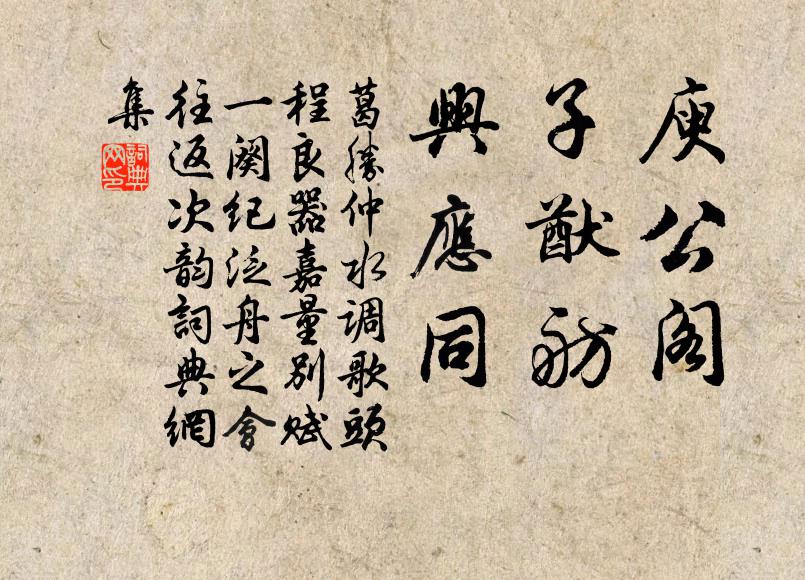 庾公阁
子猷舫
興應同
葛勝仲水调歌頭
程良器嘉量別赋
一阕纪泛舟之會
往返次韵詞典網
集
詞典網印